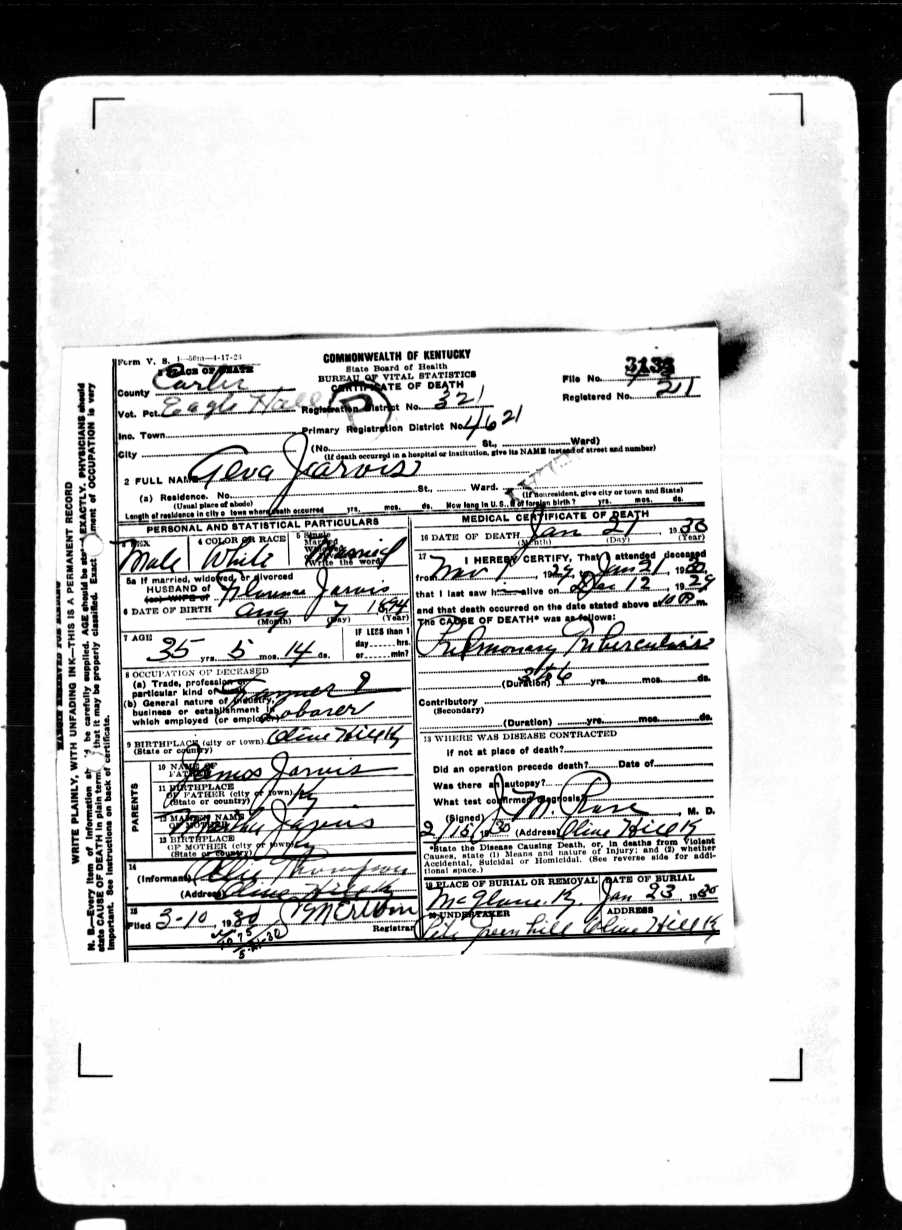 Form V. S. 1—50m—4-17-23
COMMONWEALTH OF KENTUCKY
State Board of Health
BUREAU OF VITAL STATISTICS
CERTIFICATE OF DEATH
1 PLACE OF DEATH
County Carter
Vot. Pct. Eagle Hall
Inc. Town
City
Registration District No. 321
Primary Registration District No. 4621
File No. 3133
Registered No. 21
(No. St., Ward)
(If death occurred in a hospital or institution, give its NAME instead of street and number)
2 FULL NAME Geva Jarvis
(a) Residence. No. St., Ward.
(Usual place of abode) (If nonresident, give city or town and State)
Length of residence in city or town where death occurred yrs. mos. ds. How long in U. S., if of foreign birth? yrs. mos. ds.
PERSONAL AND STATISTICAL PARTICULARS
3 SEX Male
4 COLOR OR RACE White
5 Single Married
(Write the word) Married
5a If married, widowed, or divorced
HUSBAND of Florence Jarvis
(or) WIFE of
6 DATE OF BIRTH Aug 7 1894
(Month) (Day) (Year)
7 AGE 35 yrs. 5 mos. 14 ds.
IF LESS than 1
day hrs.
or min?
8 OCCUPATION OF DECEASED
(a) Trade, profession or
particular kind of Farmer
(b) General nature of industry,
business or establishment in
which employed (or employer) Laborer
9 BIRTHPLACE (city or town) Olive Hill Ky
(State or country)
PARENTS
10 NAME OF
FATHER James Jarvis
11 BIRTHPLACE
OF FATHER (city or town) Ky
(State or country)
12 MAIDEN NAME
OF MOTHER Martha Jarvis
13 BIRTHPLACE
OF MOTHER (city or town) Ky
(State or country)
14
(Informant) Thompson
(Address) Olive Hill Ky
15
Filed 3-10, 1930
Registrar
MEDICAL CERTIFICATE OF DEATH
16 DATE OF DEATH Jan 21, 1930
(Month) (Day) (Year)
17 I HEREBY CERTIFY, That I attended deceased
from Nov 1, 1929, to Jan 21, 1930
that I last saw h alive on Dec 12, 1929
and that death occurred on the date stated above at 10 P m.
The CAUSE OF DEATH* was as follows:
Pulmonary Tuberculosis
(Duration) yrs. mos. ds.
Contributory
(Secondary)
(Duration) yrs. mos. ds.
18 WHERE WAS DISEASE CONTRACTED
if not at place of death?
Did an operation precede death? Date of
Was there an autopsy?
What test confirmed diagnosis?
(Signed) J. M. Rose, M. D.
2/15, 1930 (Address) Olive Hill Ky
*State the Disease Causing Death, or, in deaths from Violent
Causes, state (1) Means and nature of Injury; and (2) whether
Accidental, Suicidal or Homicidal. (See reverse side for addi-
tional space.)
19 PLACE OF BURIAL OR REMOVAL McGlone Ky.
DATE OF BURIAL Jan 23, 1930
20 UNDERTAKER Pete Greenhill
ADDRESS Olive Hill Ky
WRITE PLAINLY, WITH UNFADING INK—THIS IS A PERMANENT RECORD
N. B.—Every item of information should be carefully supplied. AGE should be stated EXACTLY. PHYSICIANS should
state CAUSE OF DEATH in plain terms, that it may be properly classified. Exact statement of OCCUPATION is very
important. See instructions on back of certificate.